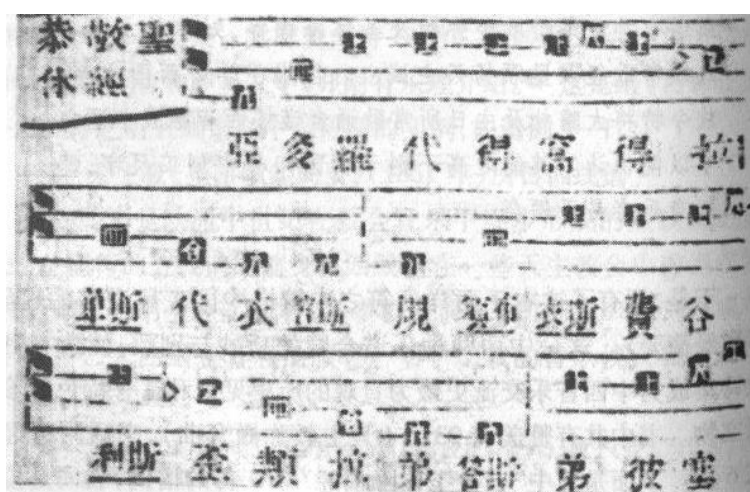 恭敬聖
体經
亞多羅代得窩得拉
單斯代衣答斯規斯費谷
利斯歪類拉弟答斯弟彼塞